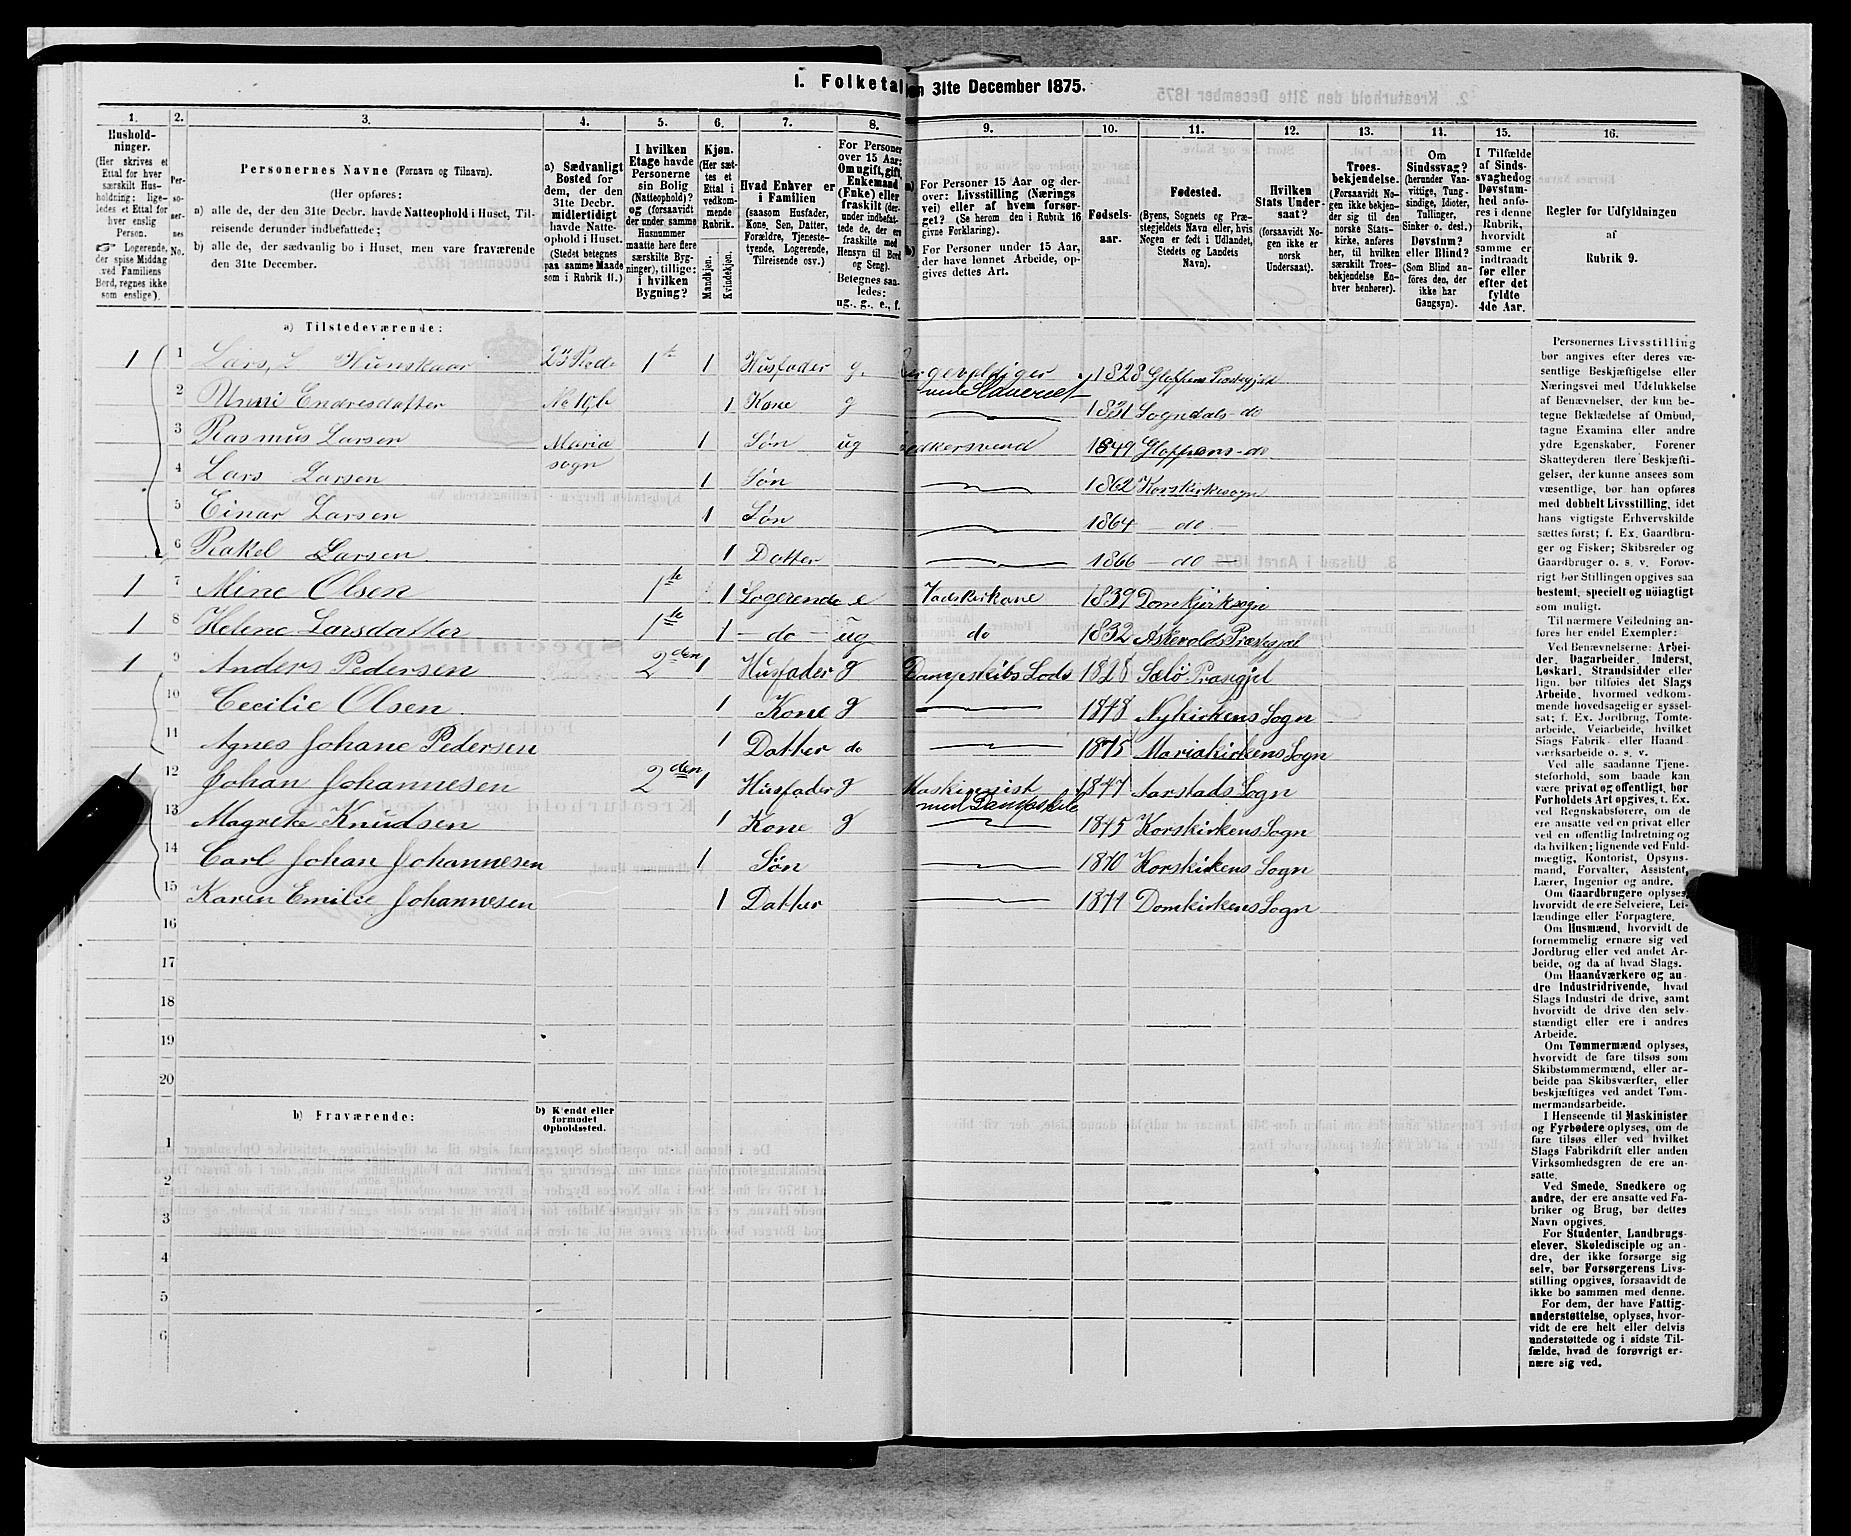 1. Folketal den 31te December 1875.
1. 2. 3. 4. 5. 6. 7. 8. 9. 10. 11. 12. 13. 14. 15. 16.
Hushold-
ninger.
(Her skrives et
Ettal for hver
særskilt Hus-
holdning: lige-
ledes et Ettal for
hver enslig
Person.
☞ Logerende,
der spise Middag
ved Familiens
Bord, regnes ikke
som enslige).
Per-
so-
ner-
nes
No.
Personernes Navne (Fornavn og Tilnavn).
(Her opføres:
a) alle de, der den 31te Decbr. havde Natteophold i Huset, Til-
reisende derunder indbefattede;
b) alle de, der sædvanlig bo i Huset, men vare fraværende
den 31te December.
a) Sædvanligt
Bosted for
dem, der den
31te Decbr.
midlertidigt
havde Natte-
ophold i Huset.
(Stedet betegnes
paa samme Maade
som i Rubrik 11.)
I hvilken
Etage havde
Personerne
sin Bolig
(Natteophold)?
og (forsaavidt
der under samme
Husnummer
maatte høre flere
særskilte Byg-
ninger), tillige:
i hvilken
Bygning?
Kjøn.
(Her sæt-
tes et
Ettal i
vedkom-
mende
Rubrik.
Mandkjøn.
Kvindekjøn.
Hvad Enhver er
i Familien
(saasom Husfader,
Kone, Søn, Datter,
Forældre, Tjeneste-
tyende, Logerende,
Tilreisende osv.)
For Personer
over 15 Aar:
Om ugift, gift,
Enkemand
(Enke) eller
fraskilt (der-
under indbefat-
tede de, der ere
fraskilte med
Hensyn til Bord
og Seng).
Betegnes saa-
ledes:
ug., g., e., f.
a) For Personer 15 Aar og der-
over: Livsstilling (Nærings
vei) eller af hvem forsør-
get? (Se herom den i Rubrik 16
givne Forklaring).
b) For Personer under 15 Aar,
der have lønnet Arbeide, op-
gives dettes Art.
Fødsels-
aar.
Fødested.
(Byens, Sognets og Præ-
stegjeldets Navn eller, hvis
Nogen er født i Udlandet,
Stedets og Landets
Navn).
Hvilken
Stats Under-
saat?
(forsaavidt No-
gen ikke er
norsk
Undersaat).
Troes-
bekjendelse.
(Forsaavidt No-
gen ikke bekjen-
der sig til den
norske Stats-
kirke, anføres
her, til hvilken
særskilt Troes-
bekjendelse En-
hver henhører).
Om
Sindssvag?
(herunder Van-
vittige, Tung-
sindige, Idioter,
Tullinger,
Sinker o. desl.)
Døvstum?
eller Blind?
(Som Blind an-
føres den, der
ikke har
Gangsyn).
I Tilfælde
af Sinds-
svaghed og
Døvstum-
hed anfø-
res i denne
Rubrik,
hvorvidt
samme er
indtraadt
før eller
efter det
fyldte
4de Aar.
Regler for Udfyldningen
af
Rubrik 9.
a) Tilstedeværende:
1 1 Lars, L Hunskaar 1te 1 Husfader g. 1828 Gloppens Præstegjeld
2 Unni Endresdatter No 10b 1 Kone g 1831 Sogndals do
3 Rasmus Larsen Maria sogn 1 Søn ug 1849 Gloppens do
4 Lars Larsen 1 Søn 1862 Korskirkesogn
5 Einar Larsen 1 Søn 1864 do
6 Rakel Larsen 1 Datter 1866 do
1 7 Mine Olsen 1te 1 Logerende e Vadskerkone 1839 Domkirksogn
1 8 Helene Larsdatter 1te 1 do ug do 1832 Askevolds Præstegjel
1 9 Anders Pedersen 2den 1 Husfader g Dampskibs Lods 1828 Selø Præsegjel
10 Cecilie Olsen 1 Kone g 1848 Nykirkens Sogn
11 Agnes Johane Pedersen 1 Datter do 1875 Mariakirkens Sogn
1 12 Johan Johannesen 2den 1 Husfader g Maskinmist med Dampskib 1847 Aarstads Sogn
13 Magrete Knudsen 1 Kone g 1845 Korskirkens Sogn
14 Carl Johan Johannesen 1 Søn 1870 Korskirkens Sogn
15 Karen Emilie Johannesen 1 Datter 1871 Domkirkens Sogn
16
17
18
19
20
b) Fraværende:
b) Kjendt eller
formodet
Opholdssted.
1
2
3
4
5
6
Personernes Livsstilling
bør angives efter deres væ-
sentlige Beskjæftigelse eller
Næringsvei med Udelukkelse
af Benævnelser, der kun be-
tegne Beklædelse af Ombud,
tagne Examina eller andre
ydre Egenskaber. Forener
Skatteyderen flere Beskjæfti-
gelser, der kunne ansees som
væsentlige, bør han opføres
med dobbelt Livsstilling, idet
hans vigtigste Erhvervskilde
sættes først; f. Ex. Gaardbru-
ger og Fisker; Skibsreder og
Gaardbruger o. s. v. Forøv-
rigt bør Stillingen opgives saa
bestemt, specielt og nöiagtigt
som muligt.
Til nærmere Veiledning an-
føres her endel Exempler:
Ved Benævnelserne: Arbei-
der, Dagarbeider, Inderst,
Løskarl, Strandsidder eller
lign. bør tilføies det Slags
Arbeide, hvormed vedkom-
mende hovedsagelig er syssel-
sat; f. Ex. Jordbrug, Tomte-
arbeide, Veiarbeide, hvilket
Slags Fabrik- eller Haand
værksarbeide o. s. v.
Ved alle saadanne Tjene-
steforhold, som baade kan
være privat og offentligt, bør
Forholdets Art opgives, t. Ex.
ved Regnskabsførere, om de
ere ansatte ved en privat eller
ved en offentlig Indretning og
da hvilken; lignende ved Fuld-
mægtig, Kontorist, Opsyns-
mand, Forvalter, Assistent,
Lærer, Ingeniør og andre.
Om Gaardbrugere oplyses,
hvorvidt de ere Selveiere, Lei-
lændinge eller Forpagtere.
Om Husmænd, hvorvidt de
fornemmelig ernære sig ved
Jordbrug eller ved andet Ar-
beide, og da af hvad Slags.
Om Haandværkere og an-
dre Industridrivende, hvad
Slags Industri de drive, samt
hvorvidt de drive den selv-
stændigt eller ere i andres
Arbeide.
Om Tømmermænd oplyses,
hvorvidt de fare tilsøs som
Skibstømmermænd, eller ar-
beide paa Skibsværfter, eller
beskjæftiges ved andet Tøm-
mermandsarbeide.
I Henseende til Maskinister
og Fyrbødere oplyses, om de
fare tilsøs eller ved hvilket
Slags Fabrikdrift eller anden
Virksomhedsgren de ere an-
satte.
Ved Smede, Snedkere og
andre, der ere ansatte ved Fa-
briker og Brug, bør dettes
Navn opgives.
For Studenter, Landbrugs-
elever, Skoledisciple og an-
dre, der ikke forsørge sig
selv, bør Forsørgerens Livs-
stilling opgives, forsaavidt de
ikke bo sammen med denne.
For dem, der have Fattig-
understøttelse, oplyses, hvor-
vidt de ere helt eller delvis
understøttede og i sidste Til-
fælde, hvad de forøvrigt er-
nære sig ved.